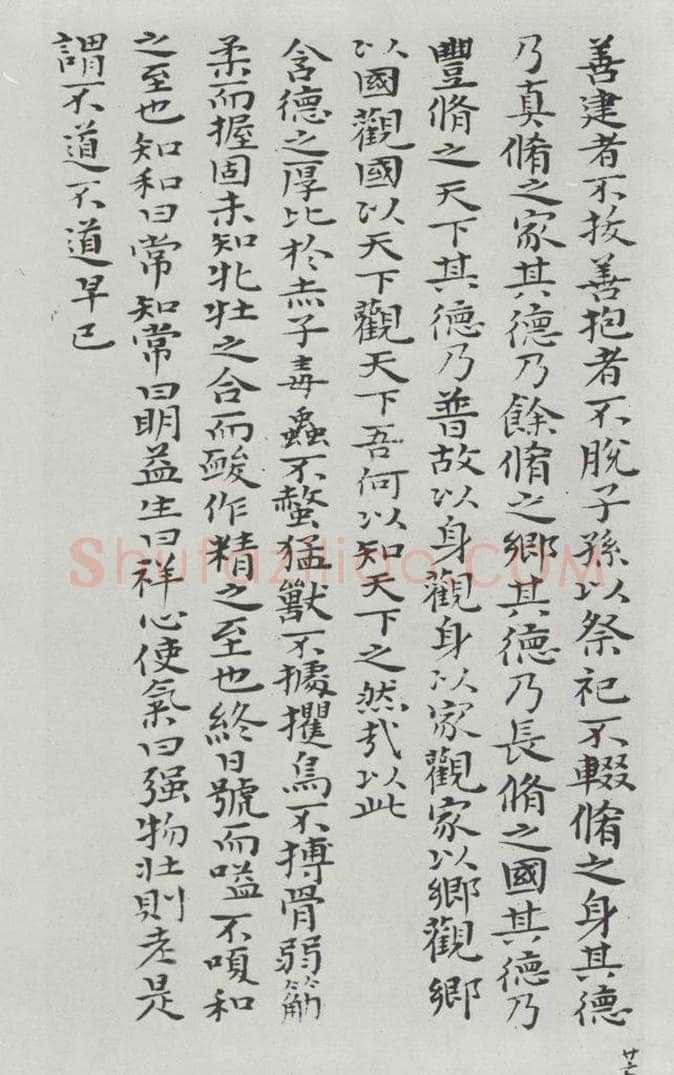 善建者不拔善抱者不脫子孫以祭祀不輟脩之身其德
乃真脩之家其德乃餘脩之鄉其德乃長脩之國其德乃
豐脩之天下其德乃普故以身觀身以家觀家以鄉觀鄉
以國觀國以天下觀天下吾何以知天下之然哉以此
含德之厚比於赤子毒蟲不螫猛獸不據攫鳥不搏骨弱筋
柔而握固未知牝牡之合而䘒作精之至也終日號而嗌不嗄和
之至也知和曰常知常曰明益生曰祥心使氣曰强物壯則老是
謂不道不道早已
Shufaziliao.COM